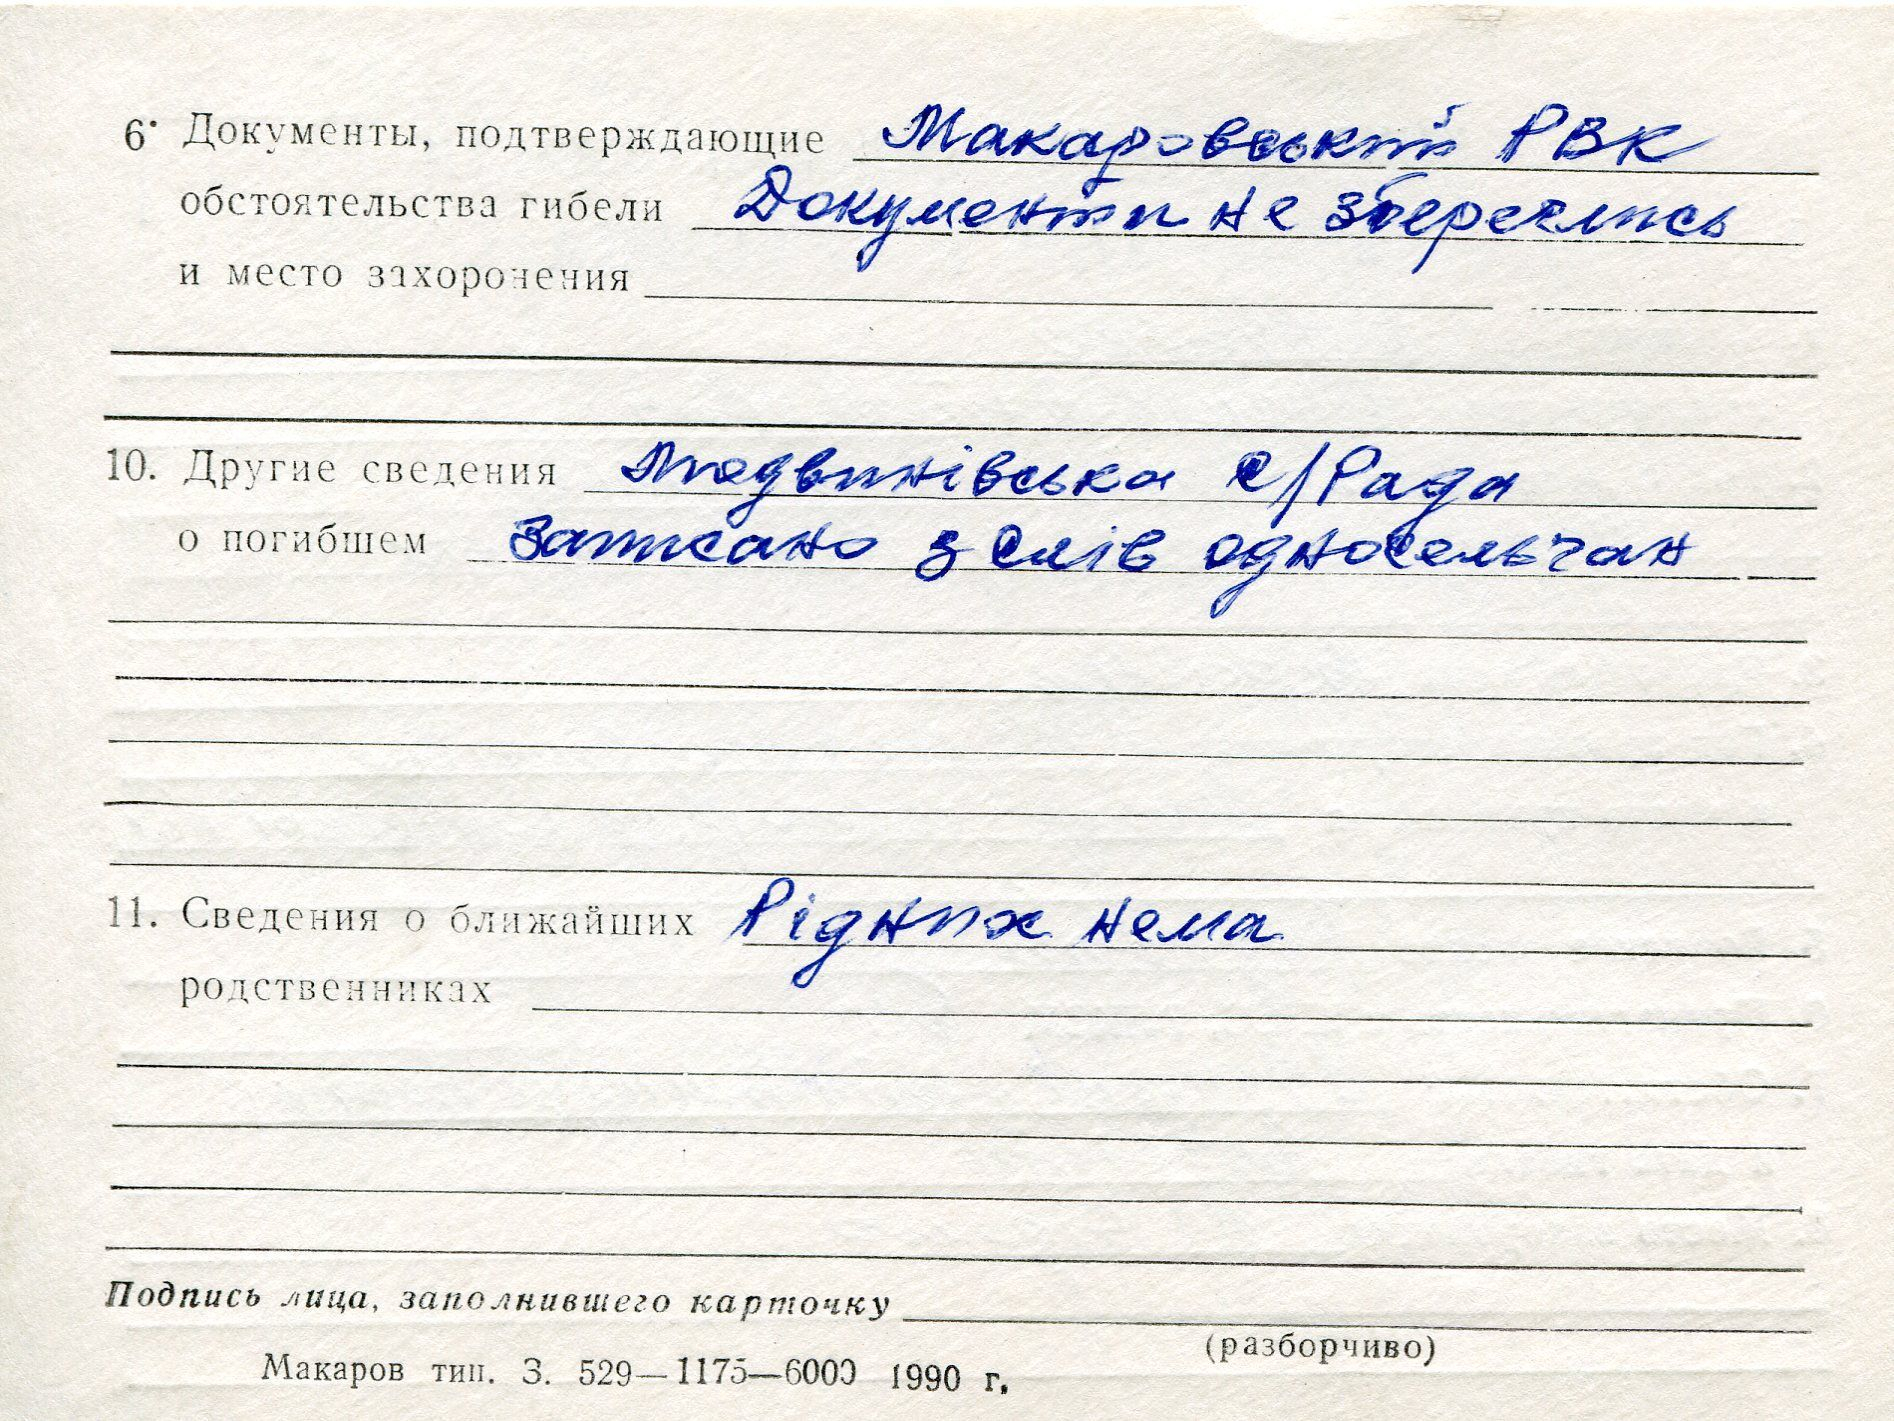 6. Документы, подтверждающие Макаровський РВК
обстоятельства гибели Документи не збереглись
и место захоронения
10. Другие сведения Людвинівська с/Рада
о погибшем Записано з слів односельчан
11. Сведения о ближайших Рідних нема
родственниках
Подпись лица, заполнившего карточку
(разборчиво)
Макаров тип. З. 529—1175—6000 1990 г.